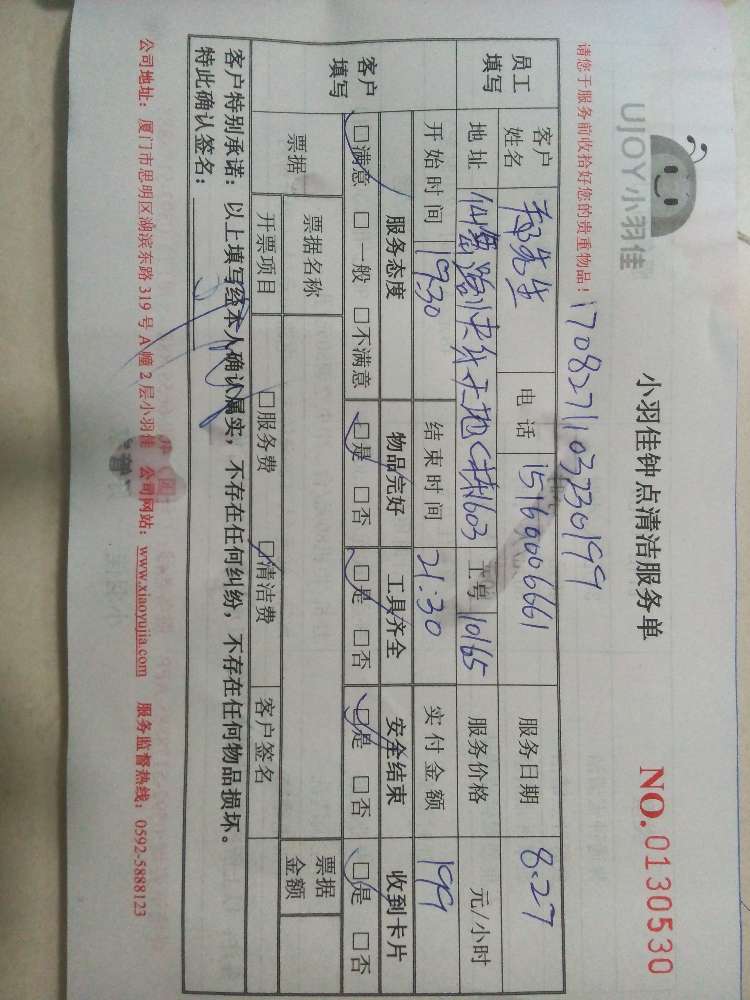 UJOY小羽佳
小羽佳钟点清洁服务单
NO.0130530
请您于服务前收拾好您的贵重物品！
170827110323 0199
员工填写
客户姓名 先生 电话 15160006661 服务日期 8.27
地址 C栋1603 工号 10165 服务价格 元/小时
开始时间 19:30 结束时间 21:30 实付金额 199
客户填写
服务态度 物品完好 工具齐全 安全结束 收到卡片
☑满意 □一般 □不满意 ☑是 □否 ☑是 □否 ☑是 □否 ☑是 □否
票据 票据名称 票据金额
开票项目 □服务费 □清洁费 客户签名
客户特别承诺：以上填写经本人确认属实，不存在任何纠纷，不存在任何物品损坏。
特此确认签名：
公司地址：厦门市思明区湖滨东路319号A幢2层小羽佳 公司网站：www.xiaoyujia.com 服务监督热线：0592-5888123